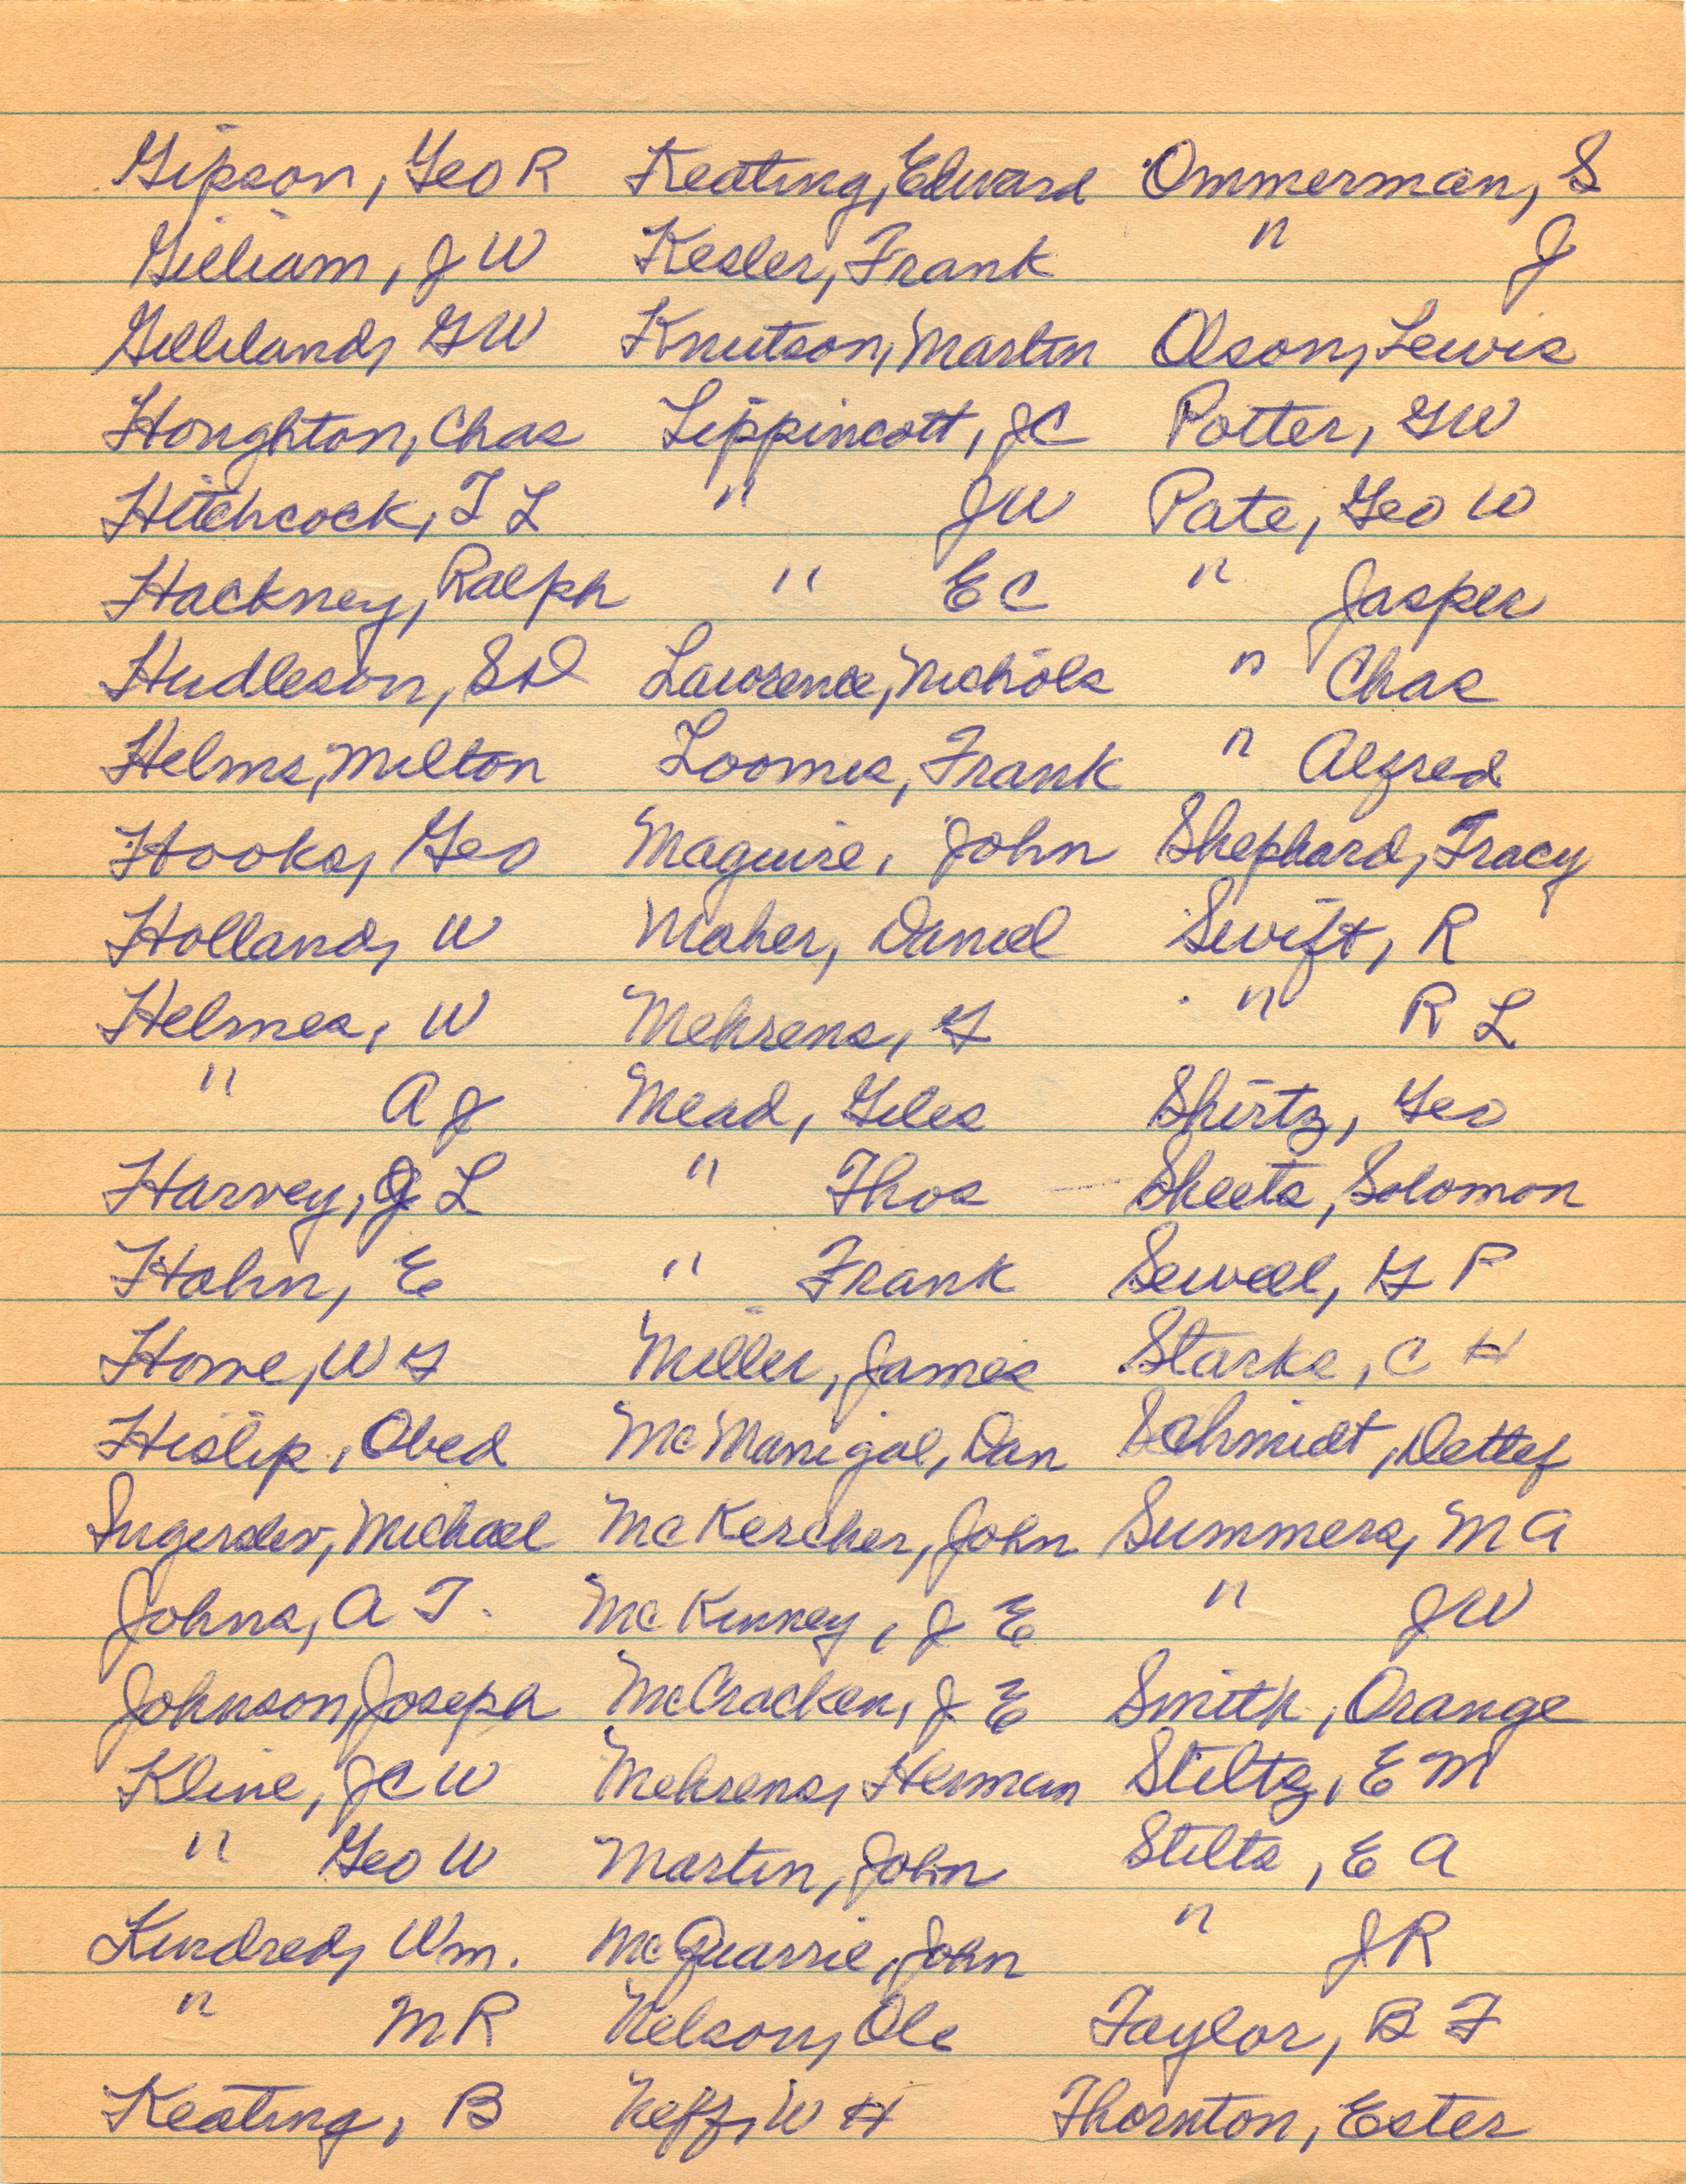 Gipson, Geo R
Gilliam, J W
Gilliland, G W
Houghton, Chas
Hitchcock, T L
Hackney, Ralph
Hudleson, Sol
Helms, Milton
Hooks, Geo
Holland, W
Helmes, W
" A J
Harvey, J L
Hahn, E
Howe, W G
Hislip, Obed
Ingerslev, Michael
Johns, A T.
Johnson, Joseph
Kline, J C W
" Geo W
Kindred, Wm.
" M R
Keating, B
Keating, Edward
Kesler, Frank
Knutson, Martin
Lippincott, J C
" J W
" E C
Lawrence, Nichols
Loomis, Frank
Maguire, John
Maher, Daniel
Mehrens, G
Mead, Giles
" Thos
" Frank
Miller, James
McManigal, Dan
McKercher, John
McKinney, J E
McCracken, J E
Mehrens, Herman
Martin, John
McQuarrie, John
Nelson, Ole
Neff, W H
Ommerman, S
" J
Olson, Lewis
Potter, G W
Pate, Geo W
" Jasper
" Chas
" Alfred
Shephard, Tracy
Swift, R
" R L
Shirtz, Geo
Sheets, Solomon
Sewell, G P
Starks, C H
Schmidt, Detlef
Summers, M A
" J W
Smith, Orange
Stiltz, E M
Stilts, E A
" J R
Taylor, B F
Thornton, Ester